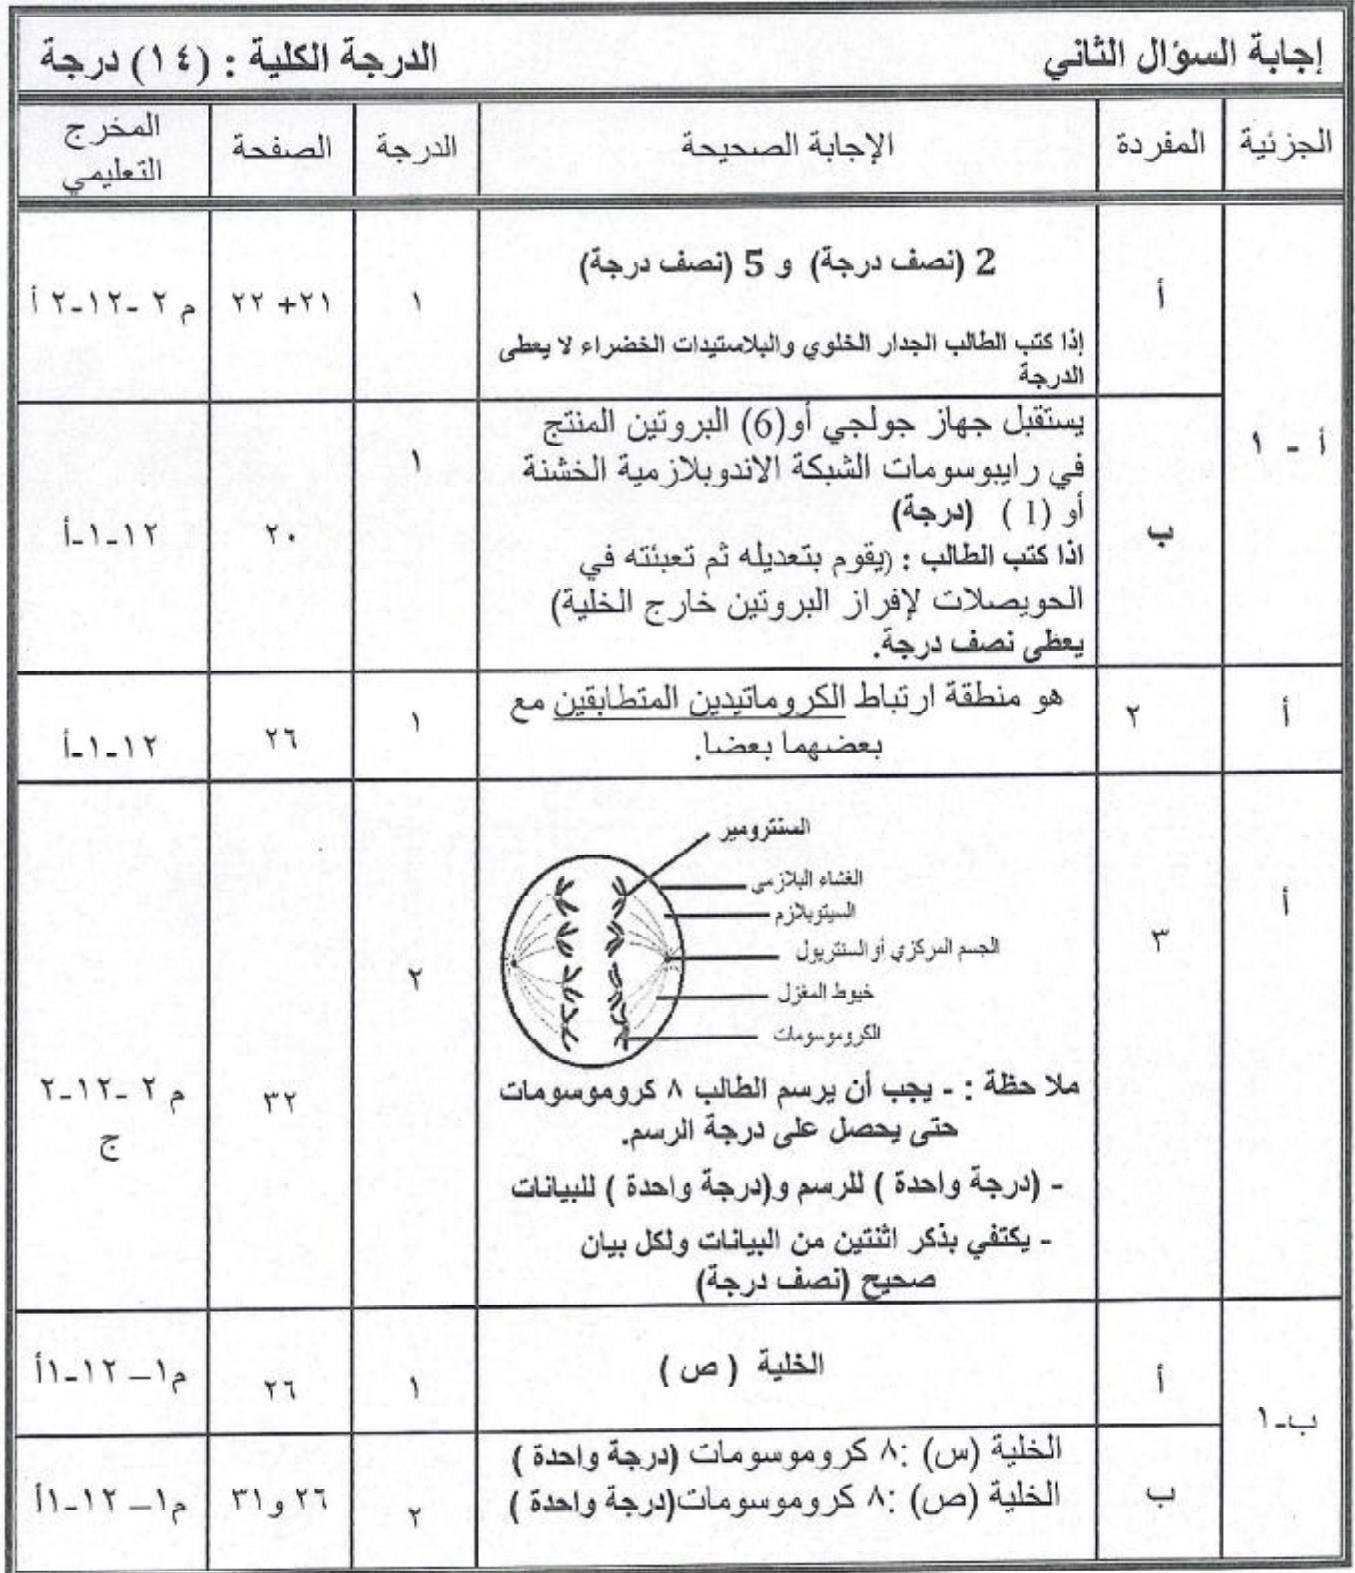 إجابة السؤال الثاني
الدرجة الكلية : (١٤) درجة
الجزئية المفردة الإجابة الصحيحة الدرجة الصفحة المخرج التعليمي
أ - ١
أ
2 (نصف درجة) و 5 (نصف درجة)
إذا كتب الطالب الجدار الخلوي والبلاستيدات الخضراء لا يعطى
الدرجة
١
٢١+ ٢٢
م ٢ -١٢-٢ أ
ب
يستقبل جهاز جولجي أو(6) البروتين المنتج
في رايبوسومات الشبكة الاندوبلازمية الخشنة
أو (1 ) (درجة)
اذا كتب الطالب : (يقوم بتعديله ثم تعبئته في
الحويصلات لإفراز البروتين خارج الخلية)
يعطى نصف درجة.
١
٢٠
١٢-١-أ
أ
٢
هو منطقة ارتباط الكروماتيدين المتطابقين مع
بعضهما بعضا.
١
٢٦
١٢-١-أ
أ
٣
السنترومير
الغشاء البلازمي
السيتوبلازم
الجسم المركزي أو السنتريول
خيوط المغزل
الكروموسومات
ملاحظة : - يجب أن يرسم الطالب ٨ كروموسومات
حتى يحصل على درجة الرسم.
- (درجة واحدة ) للرسم و(درجة واحدة ) للبيانات
- يكتفي بذكر اثنتين من البيانات ولكل بيان
صحيح (نصف درجة)
٢
٣٢
م ٢ -١٢-٢
ج
ب-١
أ
الخلية ( ص )
١
٢٦
م١– ١٢-١أ
ب
الخلية (س) :٨ كروموسومات (درجة واحدة )
الخلية (ص) :٨ كروموسومات(درجة واحدة )
٢
٢٦ و ٣١
م١– ١٢-١أ